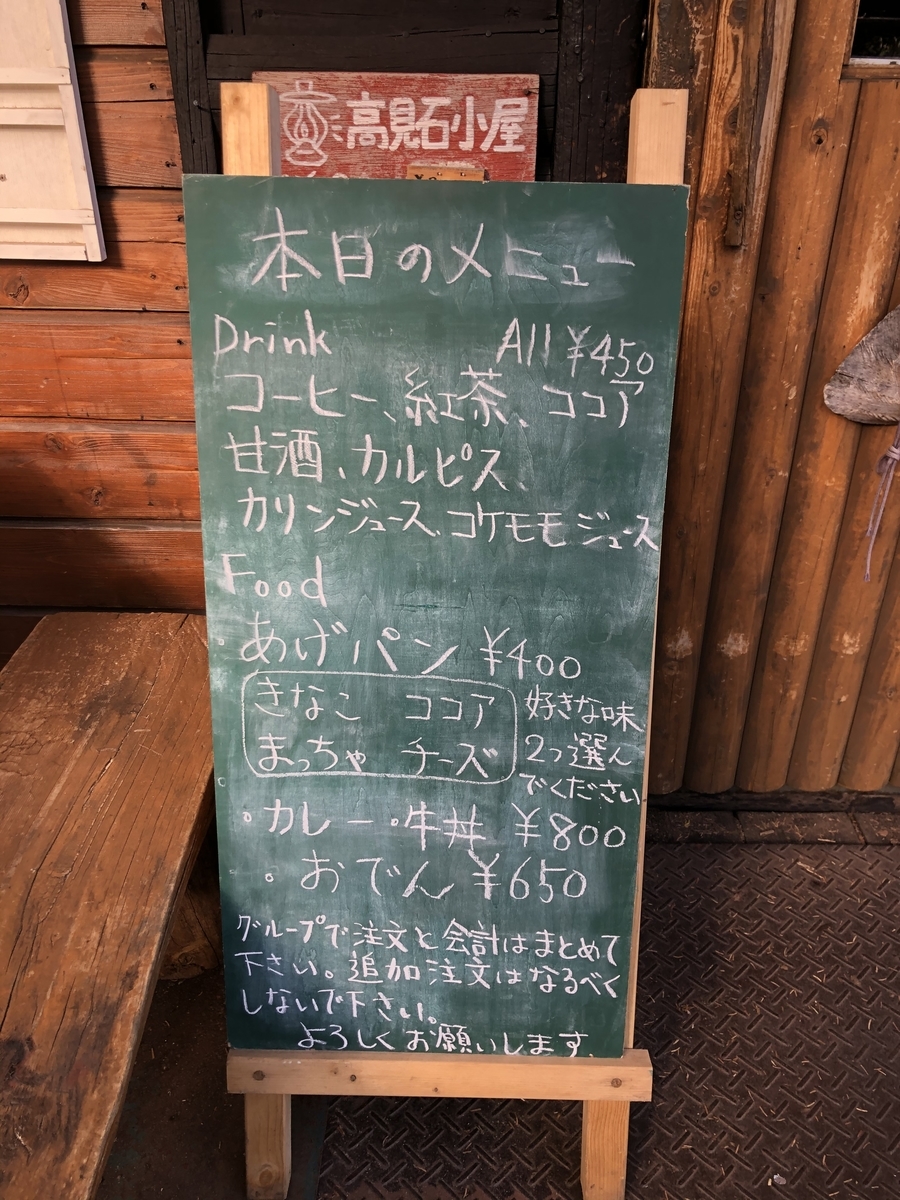 高見石小屋
本日のメニュー
Drink All ¥450
コーヒー、紅茶、ココア
甘酒、カルピス、
カリンジュース、コケモモジュース
Food
・あげパン ¥400
きなこ ココア 好きな味
まっちゃ チーズ 2つ選ん
でください
・カレー ・牛丼 ¥800
・おでん ¥650
グループで注文と会計はまとめて
下さい。追加注文はなるべく
しないで下さい。
よろしくお願いします。